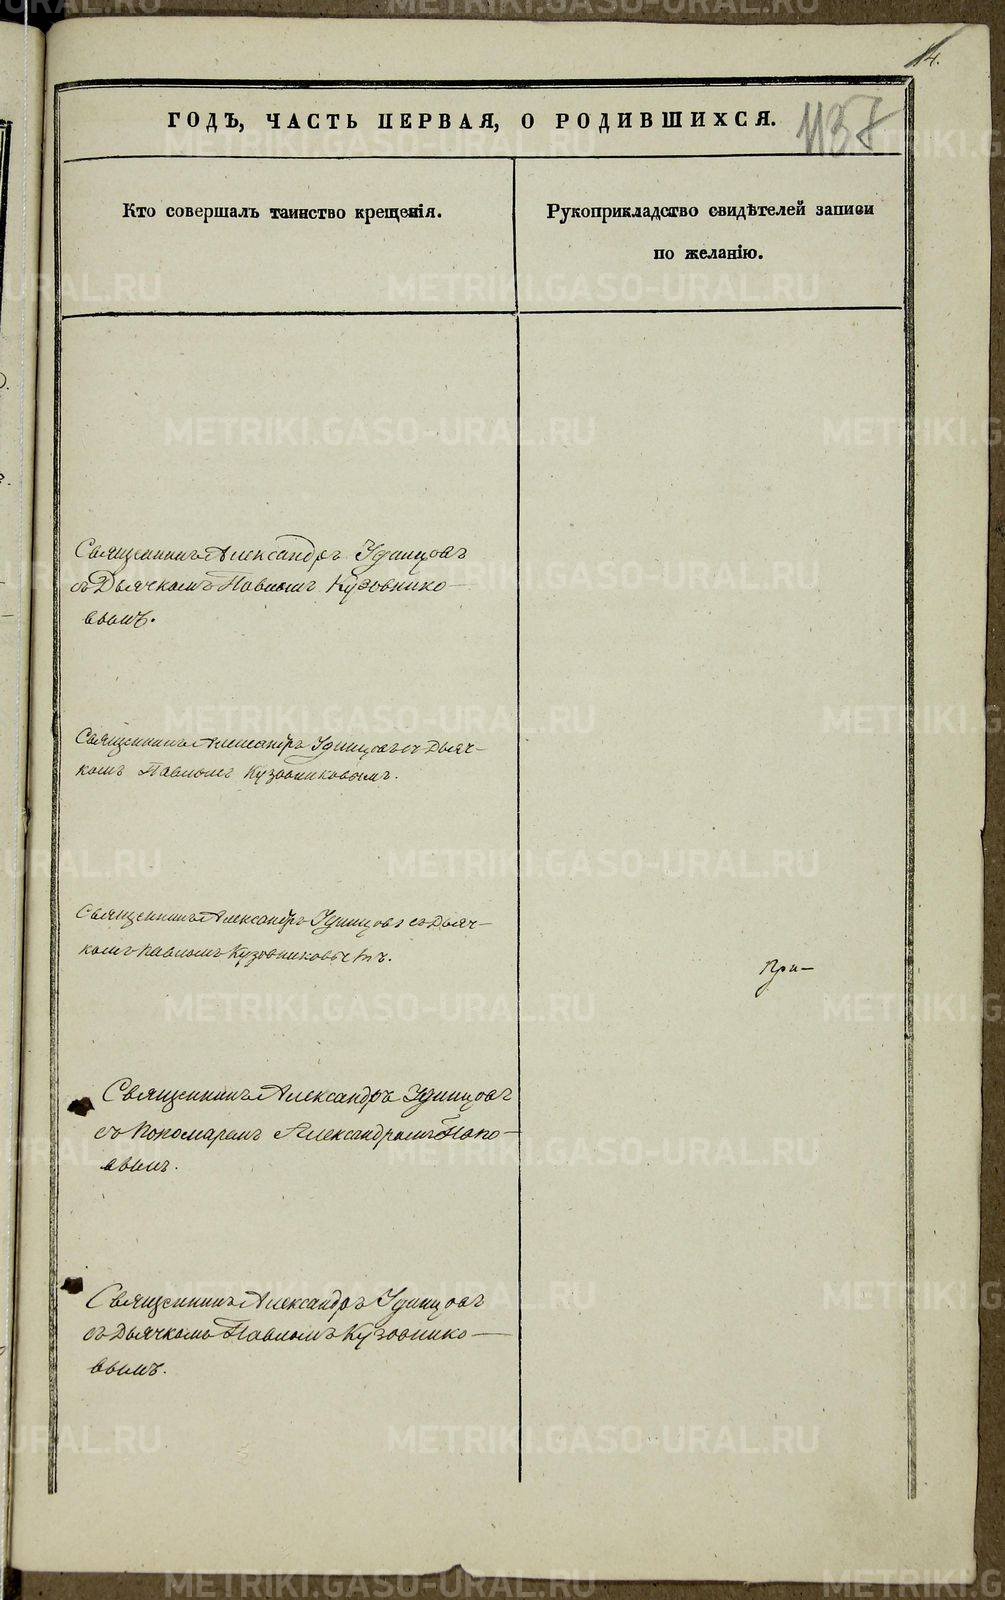 4.
ГОДЪ, ЧАСТЬ ПЕРВАЯ, О РОДИВШИХСЯ.
1137
Кто совершалъ таинство крещенія.
Рукоприкладство свидѣтелей записи
по желанію.
Священникъ Александръ Удинцовъ
съ Дьячкомъ Павломъ Кузовнико-
вымъ.
Священникъ Александръ Удинцовъ съ Дьяч-
комъ Павломъ Кузовниковымъ.
Священникъ Александръ Удинцовъ съ Дьяч-
комъ Павломъ Кузовниковымъ.
При-
Священникъ Александръ Удинцовъ
съ Пономаремъ Александромъ Попо-
вымъ.
Священникъ Александръ Удинцовъ
съ Дьячкомъ Павломъ Кузовнико-
вымъ.
METRIKI.GASO-URAL.RU